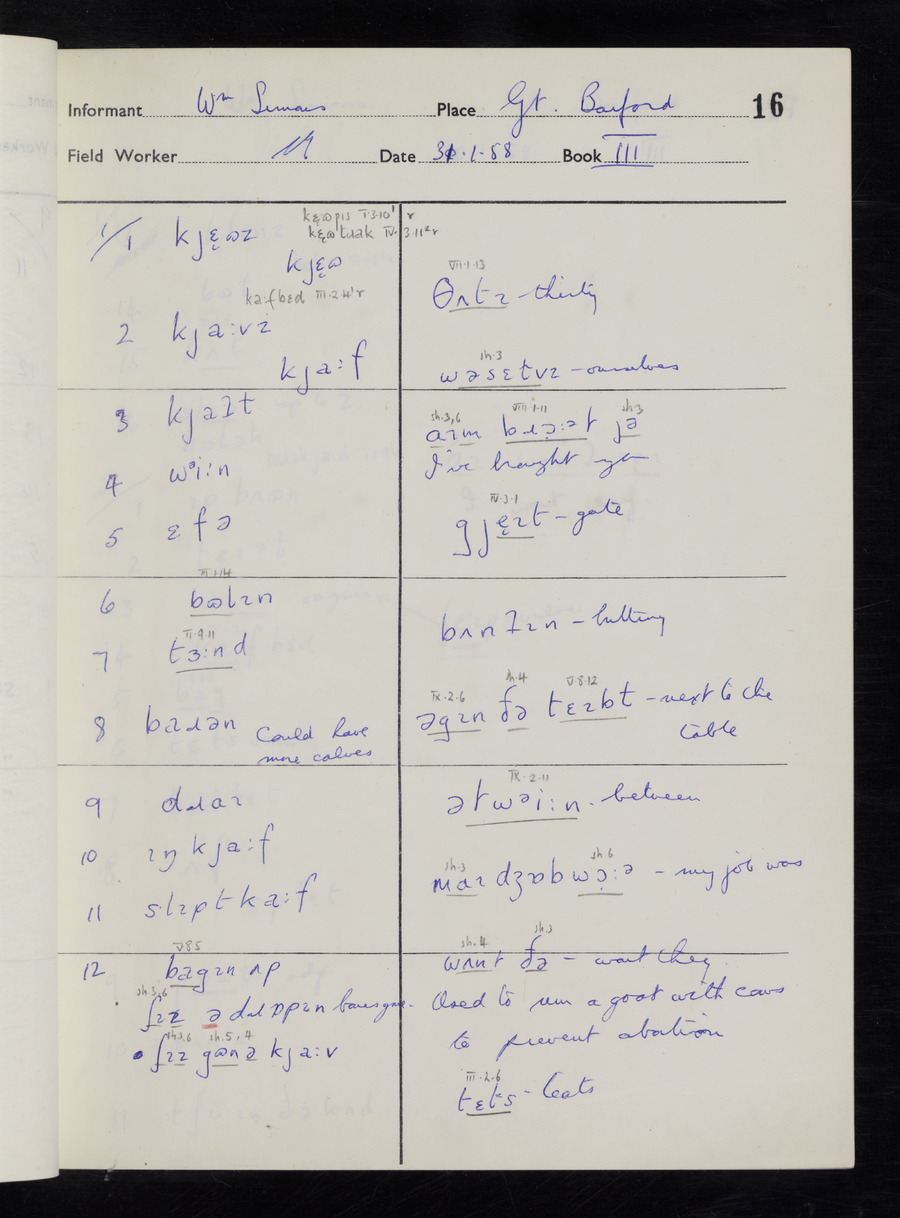 Informant Wm Place Gt. Barford 16
Field Worker Date 31.1.58 Book III
1/1 kjɛ̣ɷz
kɛ̣ɷpɪs I.3.10¹ r
kɛ̣ɷtɹak IV.3.11²r
kjɛ̣ɷ
ka:fbɛd III.2.4¹r
2 kja:vz
kja:f
3 kjaɫt
4 wᵊi:n
5 ɛfə
III.1.14
6 bɷlɪn
II.9.11
7 tɜ:nd
8 baɹən Could have
more calves
9 dɹaɪ
10 ɪŋkja:f
11 slɪptka:f
V.8.5
12 bagɪn ʌp
sh.3,6
ʃɪz ə dɹɒpɪn
sh.3.6 sh.5,4
• ʃɪz gɷnə kja:v
VII.1.13
θʌtɪ - thirty
sh.3
wəsɛtvz - ourselves
sh.3,6 VIII.1.11 sh.3
aɪm bɹɔ̣:ət jə
I've brought you
IV.3.1
gjẹɪt - gate
bʌnɪn - butting
IX.2.6 sh.4 V.8.12
əgɪn ðə tɛɪbt - next to the
table
IX.2.11
ətwᵊi:n - between
sh.3 sh.6
maɪ dʒɒb wɔ̣:ə - my job was
sh.4 sh.3
wʌnt ðə - want they
Used to run a goat with cows
to prevent abortion
III.2.6
tɛts - teats